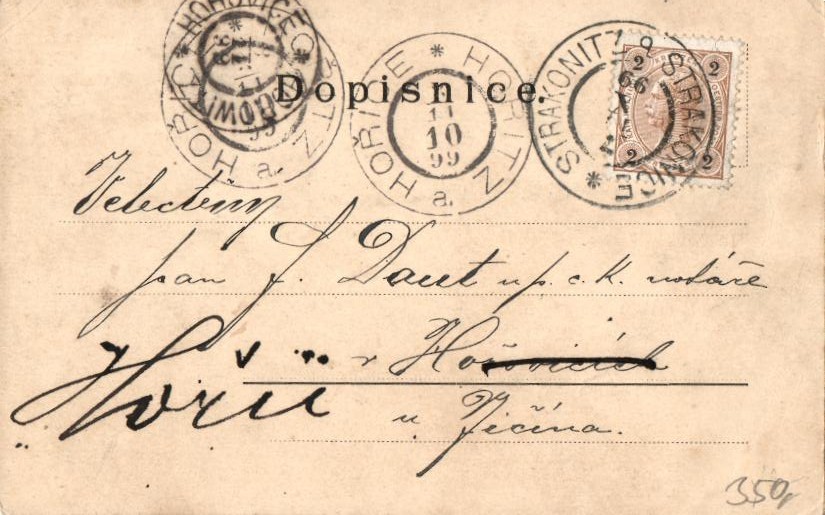 HOŘOVICE
HOŘICE * HORITZ
a.
11
10
99
STRAKONITZ * STRAKONICE
2 2
2 2
Dopisnice.
Velectěný
pan J. Daut u p. c. k. notáře
v Hořovicích
Hořic
u Jičína.
350,-